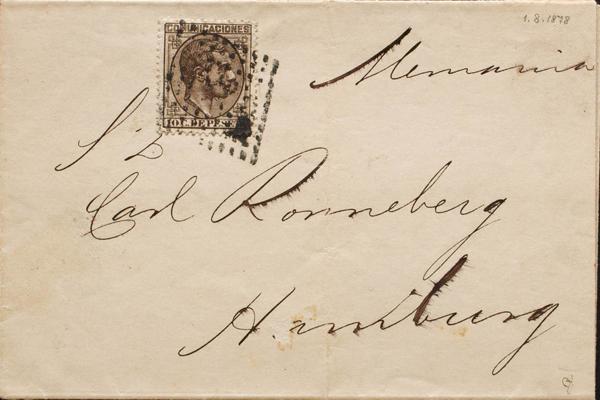 1.8.1878
COMUNICACIONES
10 C. DE PESETA
Alemania
Sr D.
Carl Ronneberg
Hamburg